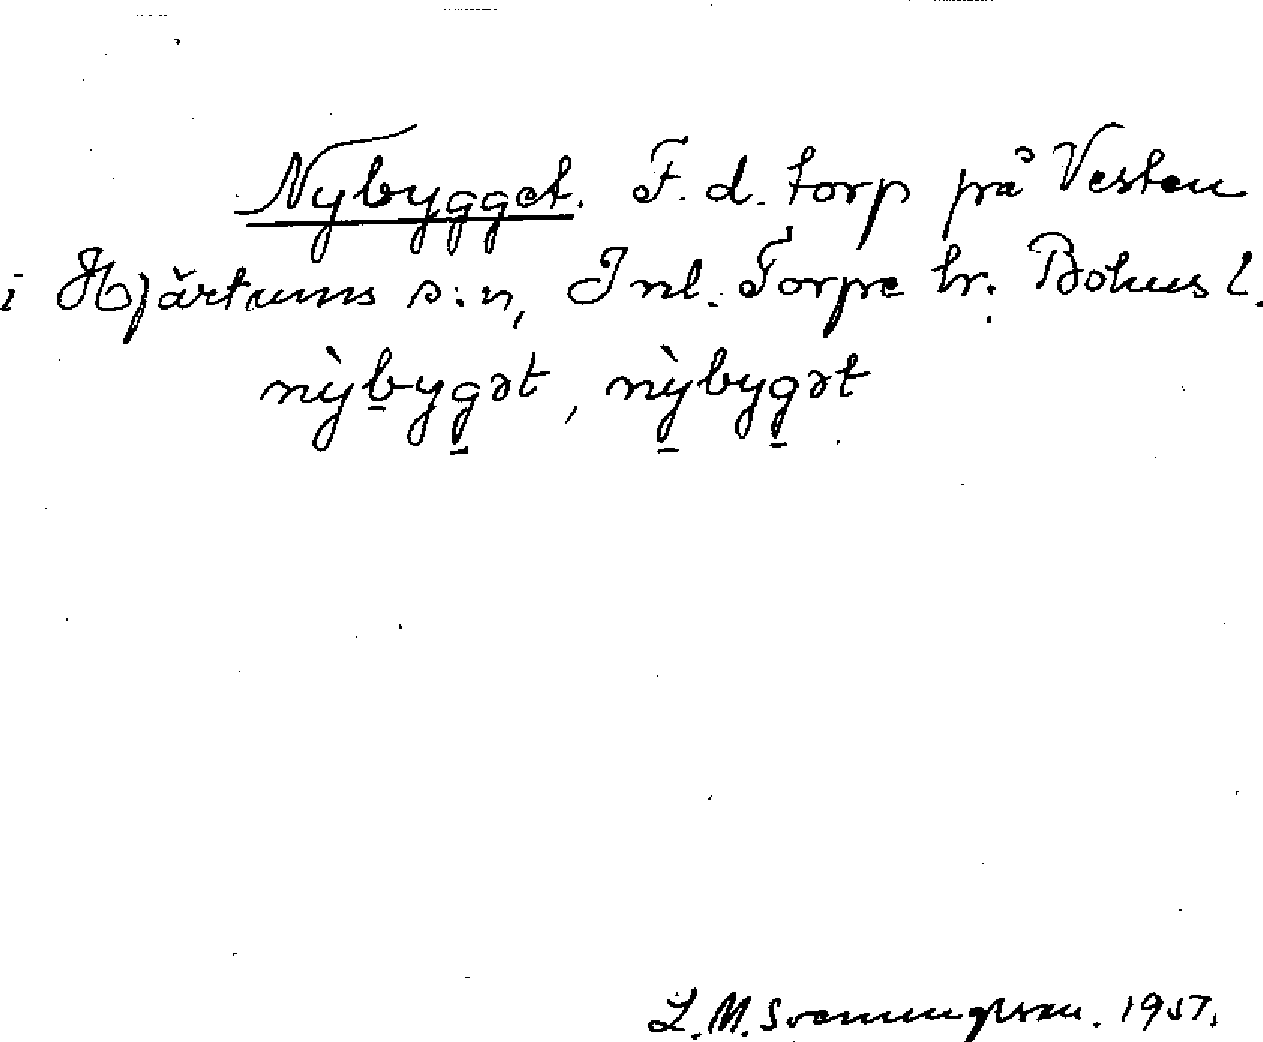 Nybygget. F. d. torp på Vesten
i Hjärtums s:n, Inl. Torpe hr. Bohus l.
nỳb̲yg̲ət, nỳ̲byg̲ət
L. M. Svenungsson. 1957.